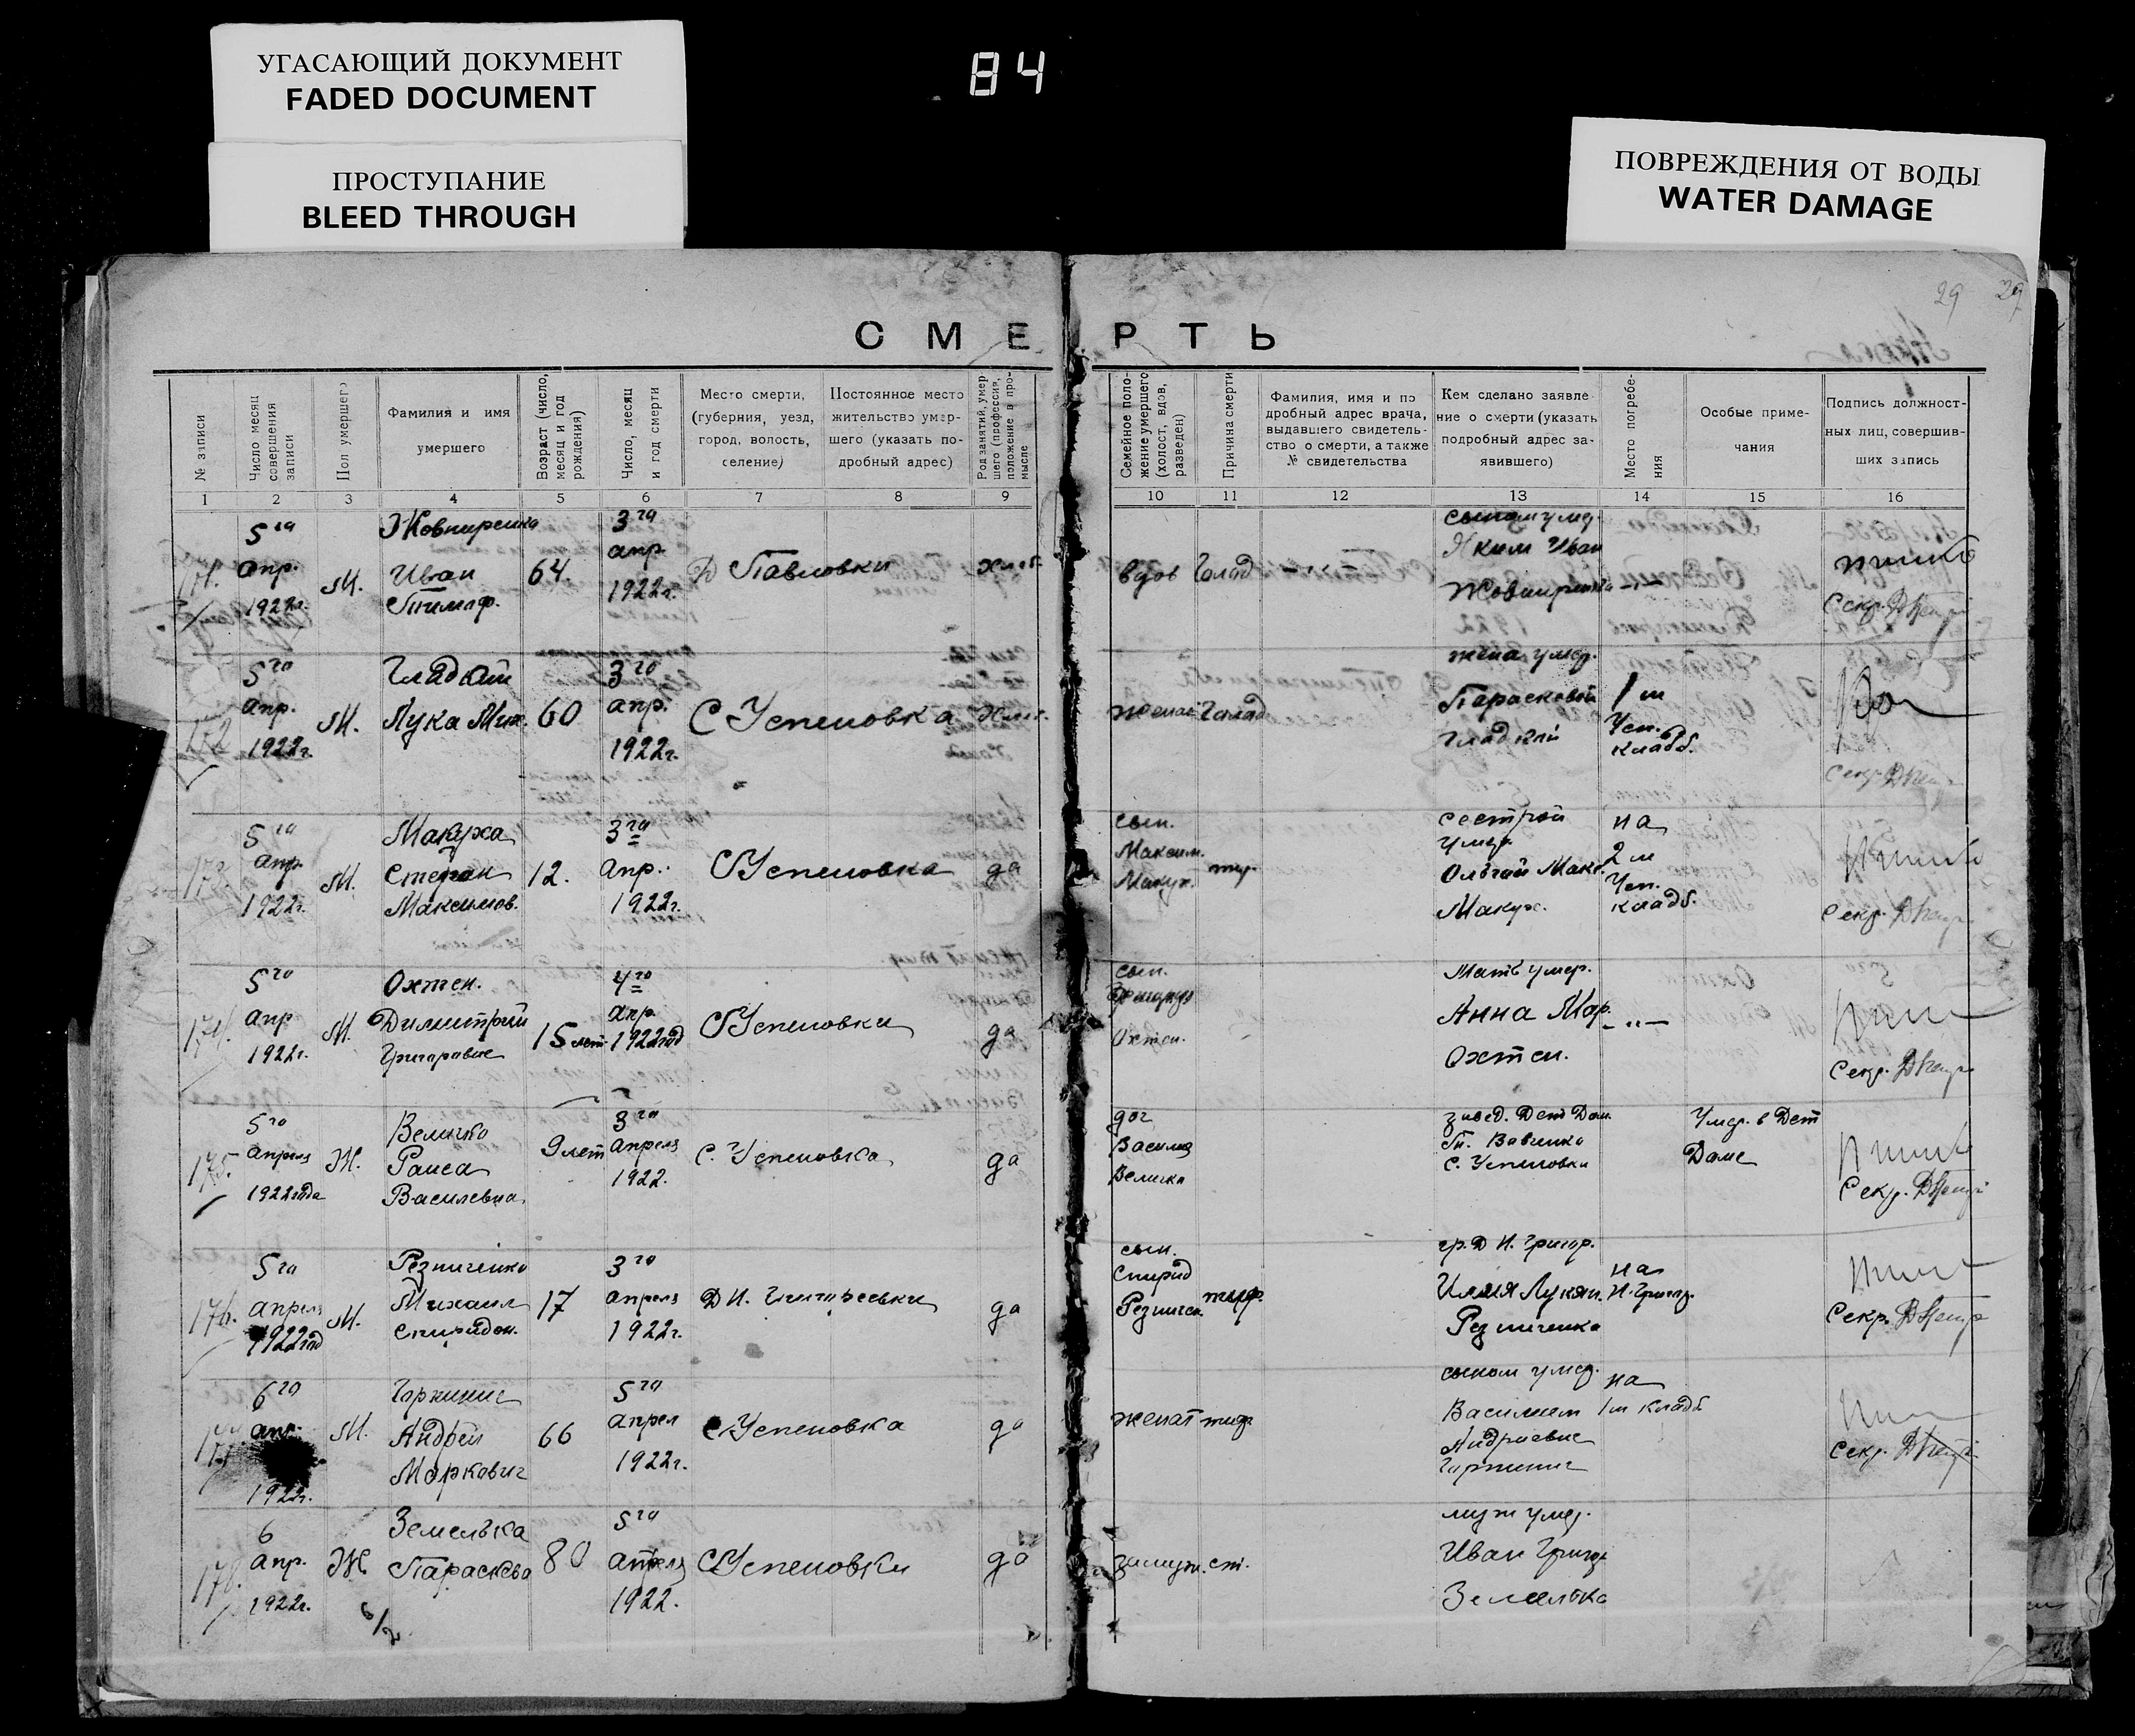 УГАСАЮЩИЙ ДОКУМЕНТ
FADED DOCUMENT
ПРОСТУПАНИЕ
BLEED THROUGH
84
ПОВРЕЖДЕНИЯ ОТ ВОДЫ
WATER DAMAGE
29 29
СМЕРТЬ
№ записи
Число месяц
совершения
записи
Пол умершего
Фамилия и имя
умершего
Возраст (число,
месяц и год
рождения)
Число, месяц
и год смерти
Место смерти,
(губерния, уезд,
город, волость,
селение)
Постоянное место
жительство умер-
шего (указать по-
дробный адрес)
Род занятий, умер-
шего (профессия,
положение в про-
мысле
Семейное поло-
жение умершего
(холост, вдов,
разведен)
Причина смерти
Фамилия, имя и по
дробный адрес врача,
выдавшего свидетель-
ство о смерти, а также
№ свидетельства
Кем сделано заявле
ние о смерти (указать
подробный адрес за-
явившего)
Место погребе-
ния
Особые приме-
чания
Подпись должност-
ных лиц, совершив-
ших запись
1 2 3 4 5 6 7 8 9 10 11 12 13 14 15 16
171.
5го
апр.
1922г.
М.
Иван
Тимоф.
64.
3го
апр.
1922г.
Д Павловки
вдов
Голод
сыном умер.
Яким Иван
Секр.
172
5го
апр.
1922г.
М.
Гладкий
Лука Мих.
60
3го
апр.
1922г.
С Успеновка
женат
Голод
жена умер.
Парасковой
Гладкий
1 м
Усп.
кладб.
Секр.
173.
5го
апр.
1922г.
М.
Макуха
Степан
Максимов.
12.
3го
апр.
1922г.
С Успеновка
да
сын.
Максим.
Макух.
тиф.
сестрой
умер.
Ольгой Макс.
Макух.
на
2 м
Усп.
кладб.
Секр.
174.
5го
апр
1922г.
М.
Охтен.
Димитрий
Григоравис
15 лет
4го
апр.
1922год
С Успеновки
да
сын.
Охтен.
Мать умер.
Анна Мар.
Охтен.
Секр.
175.
5го
апреля
1922года
Ж.
Величко
Раиса
Василевна
9 лет
3го
апреля
1922.
С. Успеновка
да
доч
Василия
Величка
завед. Дет Дом.
С. Успеновки
Умер. в Дет
Доме
Секр.
176.
5го
апреля
1922год
М.
Резниченко
Михаил
Спиридон.
17
3го
апреля
1922г.
да
сын.
Спирид
Резничен.
тиф.
гр. Д Н. Григор.
Илия Лукян.
Резниченко
на
Н. Григор.
Секр.
177.
6го
апр.
1922г.
М.
Андрей
Маркович
66
5го
апрел
1922г.
С Успеновка
да
женат
тиф
сыном умер.
Василием
Андриевис
на
1м кладб
Секр.
178.
6
апр.
1922г.
Ж.
Земелька
Парасква
80
5го
апреля
1922.
С Успеновки
да
замуж.
ст.
муж умер.
Иван Григор
Земелька